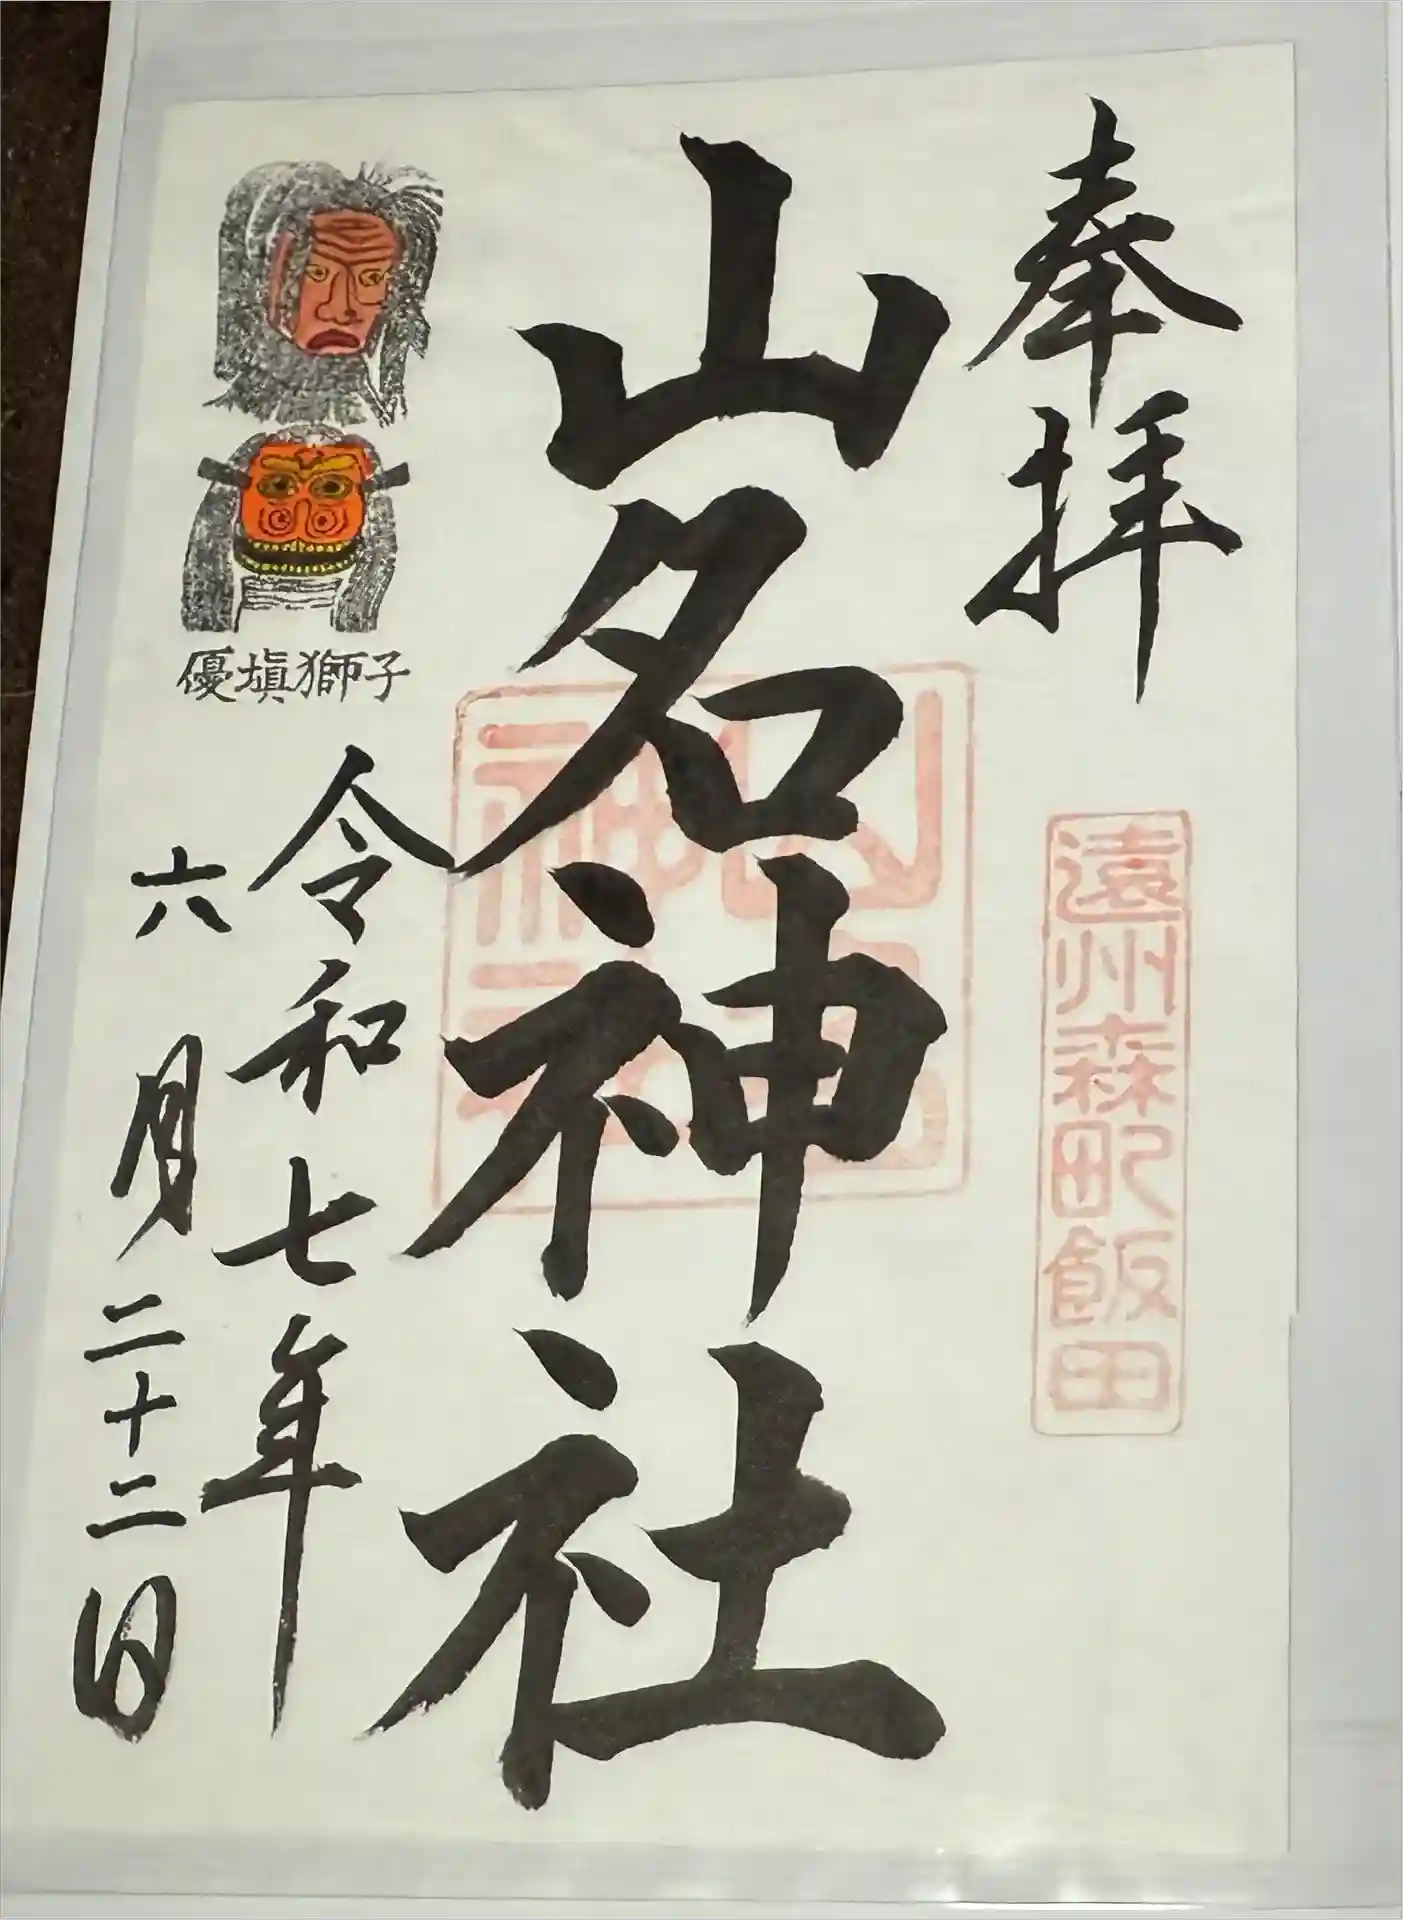 奉拝
遠州森町飯田
山名神社
山名神社
優塡獅子
令和七年
六月二十二日